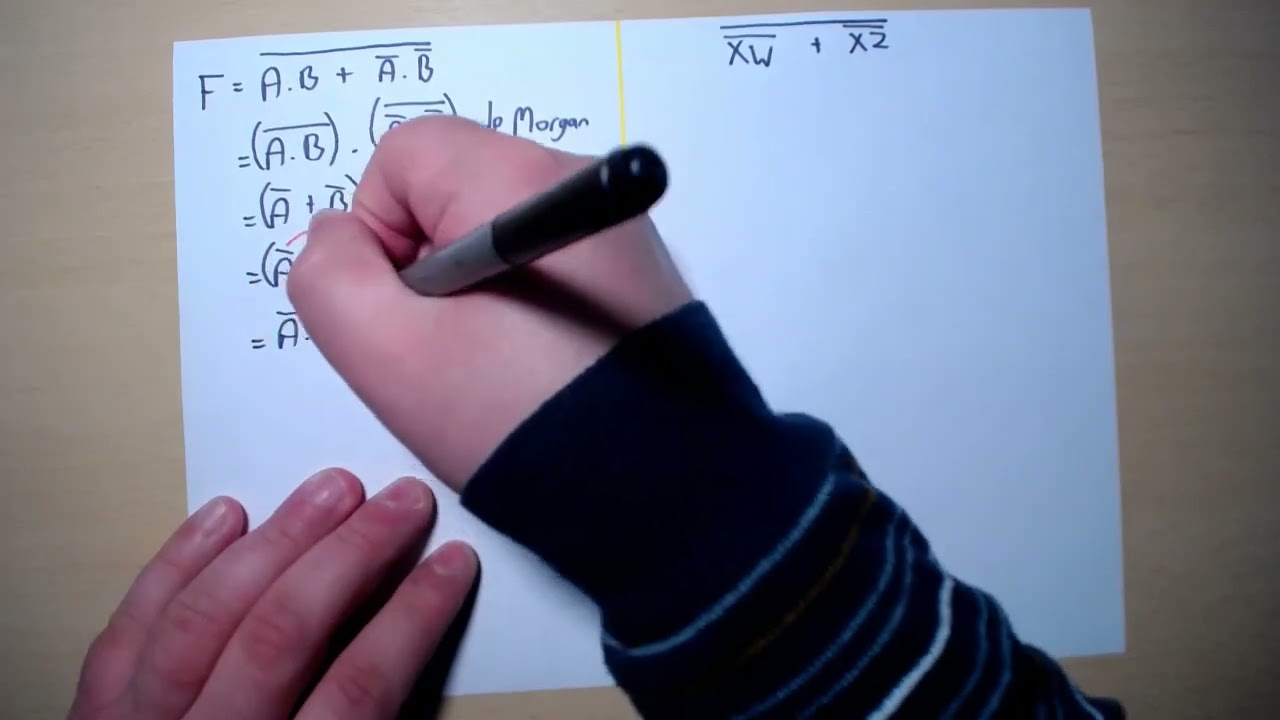 F = \overline{A.B + \overline{A}.\overline{B}}
= (\overline{A.B}) . (
de Morgan
= (\overline{A} + \overline{B}
= (\overline{A}
= \overline{A} .
\overline{\overline{XW} + \overline{XZ}}